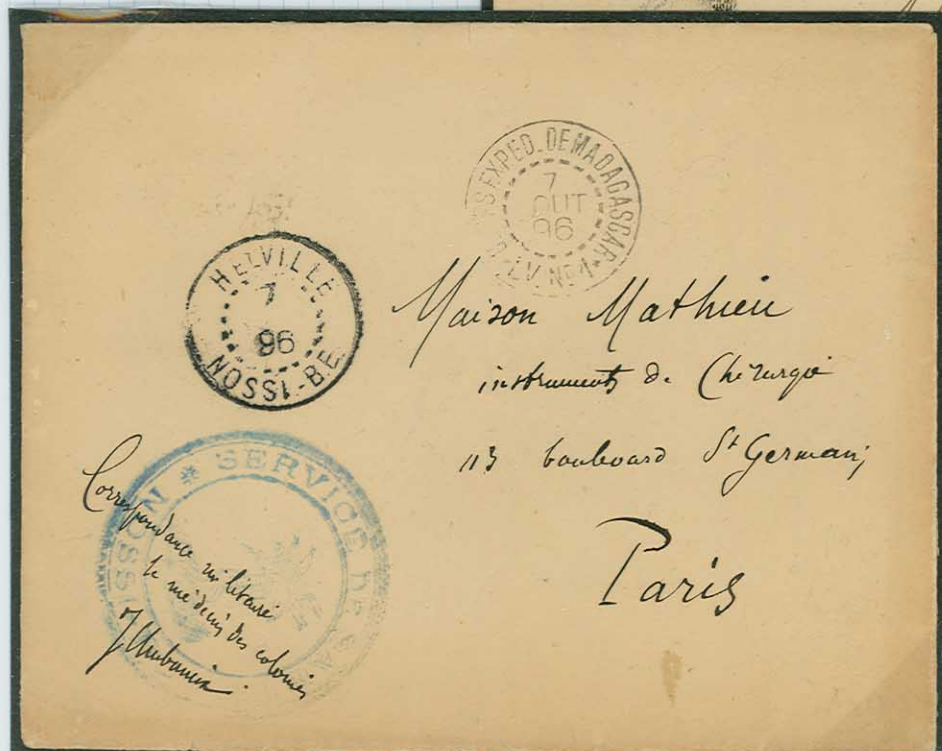 CPS EXPED. DE MADAGASCAR
7
OUT
96
Nº 1
HELVILLE
7
96
NOSSI-BE
Maison Mathieu
instruments de Chirurgie
113 boulevard St Germain,
Paris
SERVICE DE
NOSSI
Correspondance militaire
le médecin des colonies